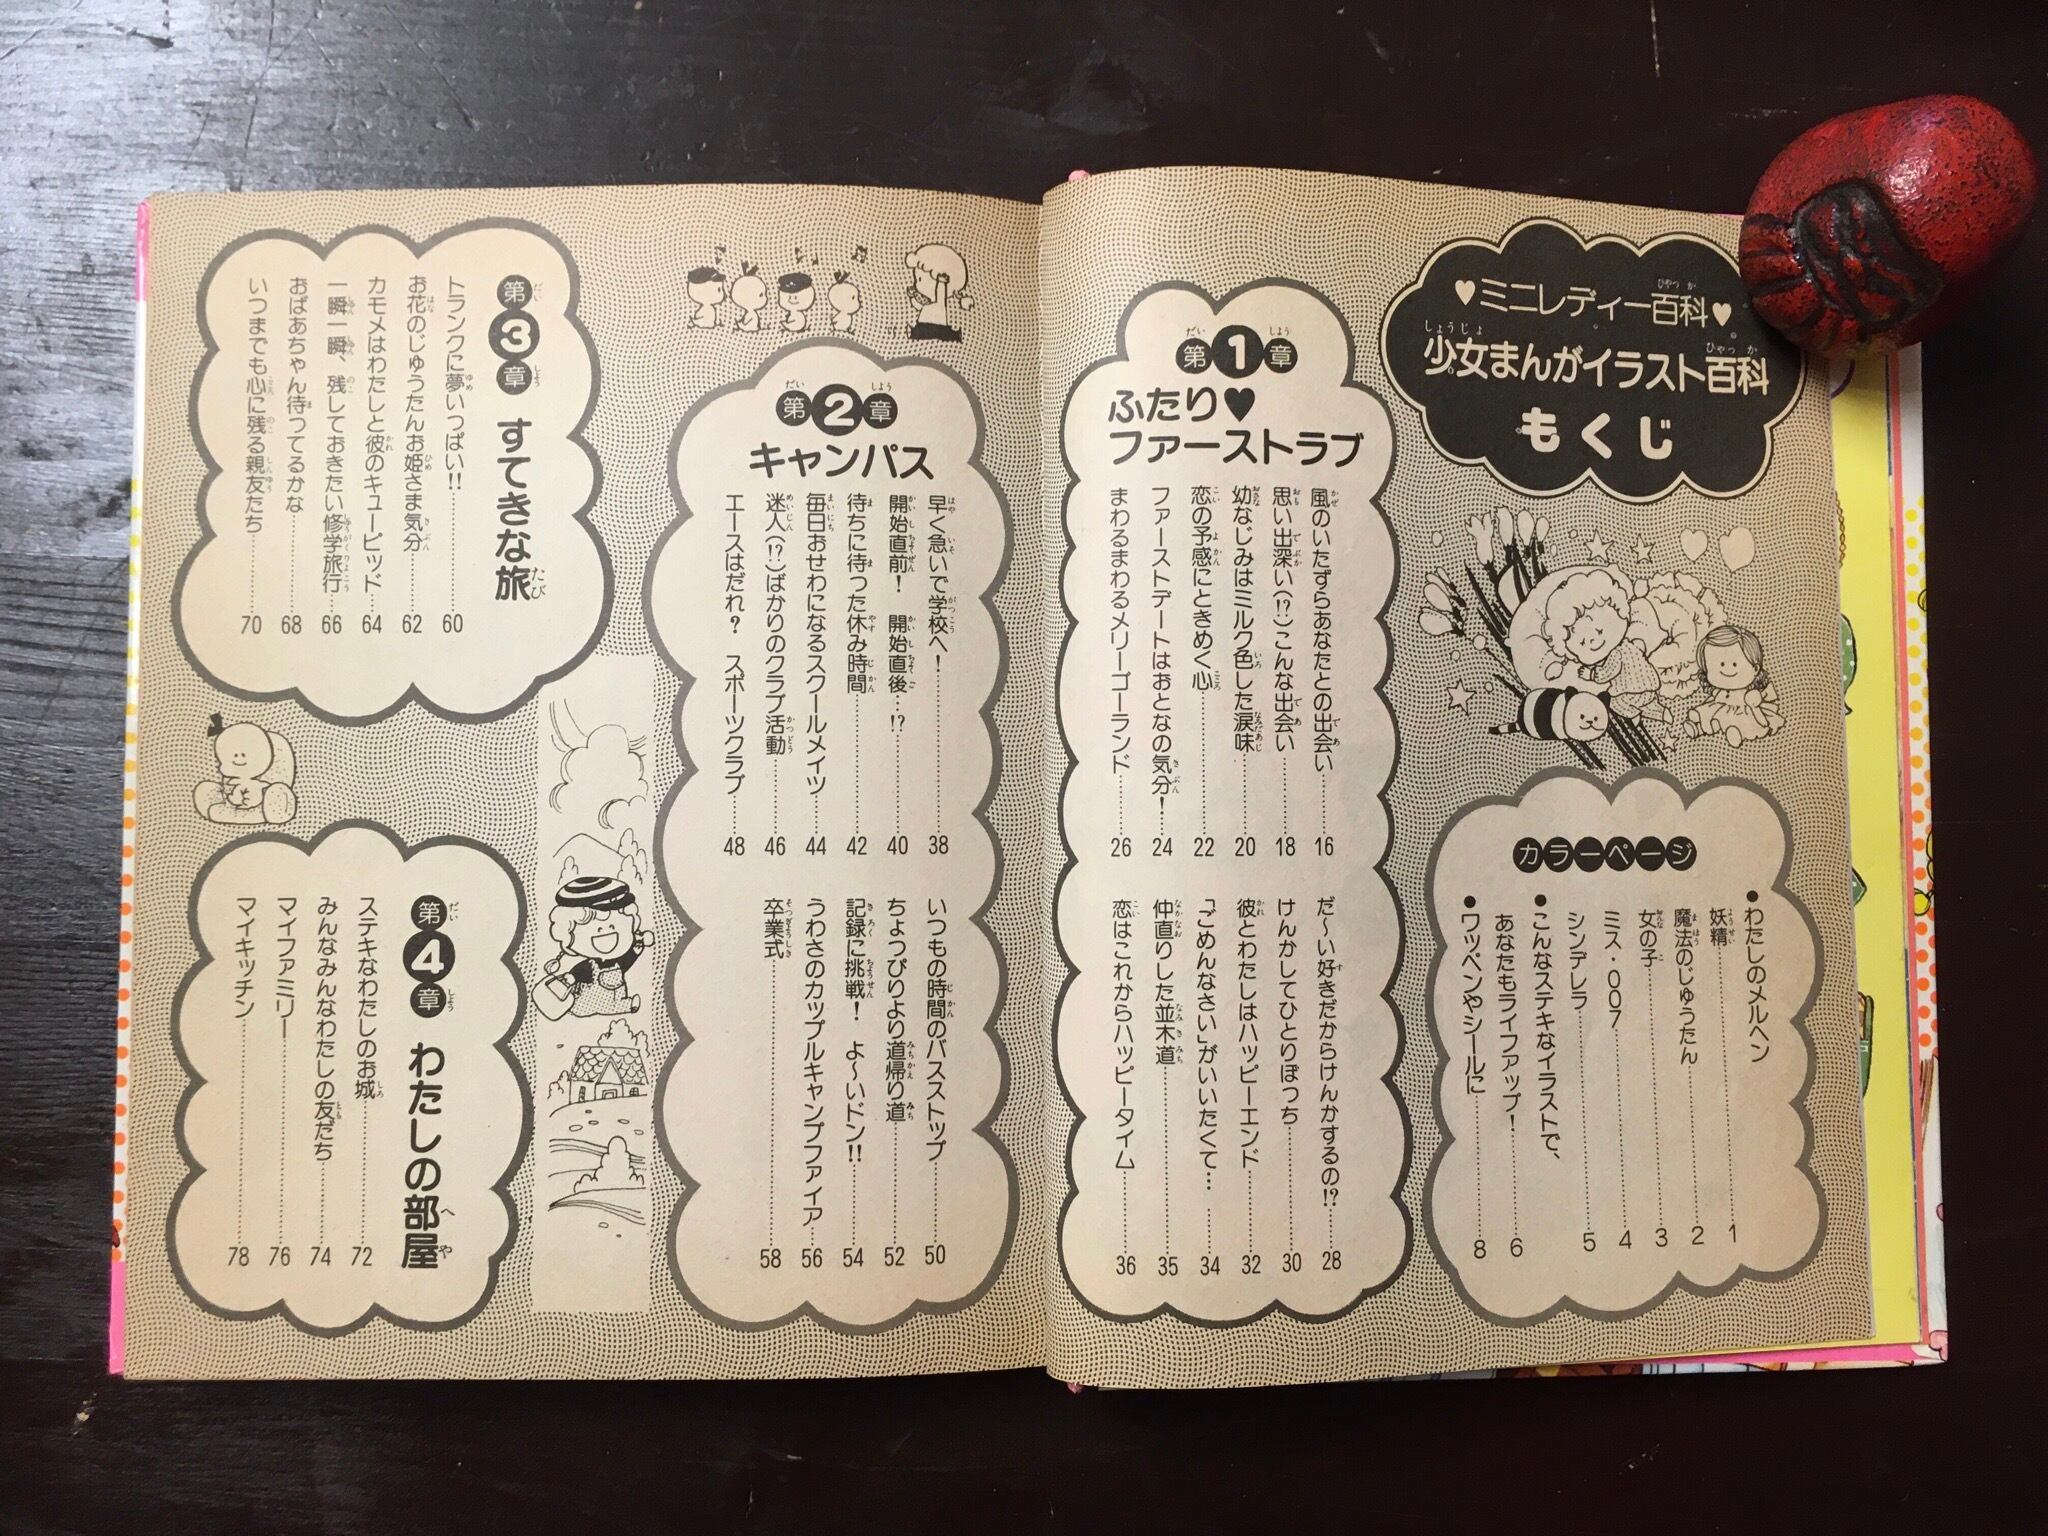 ♥ミニレディー百科♥
少女まんがイラスト百科
もくじ
カラーページ
●わたしのメルヘン
妖精………1
魔法のじゅうたん………2
女の子………3
ミス・007………4
シンデレラ………5
●こんなステキなイラストで、
あなたもライフアップ！………6
●ワッペンやシールに………8
第1章
ふたり♥
ファーストラブ
風のいたずらあなたとの出会い………16
思い出深い(!?)こんな出会い………18
幼なじみはミルク色した涙味………20
恋の予感にときめく心………22
ファーストデートはおとなの気分！………24
まわるまわるメリーゴーランド………26
だ〜い好きだからけんかするの!?………28
けんかしてひとりぼっち………30
彼とわたしはハッピーエンド………32
「ごめんなさい」がいいたくて………34
仲直りした並木道………35
恋はこれからハッピータイム………36
第2章
キャンパス
早く急いで学校へ！………38
開始直前！　開始直後…!?………40
待ちに待った休み時間………42
毎日おせわになるスクールメイツ………44
迷人(!?)ばかりのクラブ活動………46
エースはだれ？　スポーツクラブ………48
いつもの時間のバスストップ………50
ちょっぴりより道帰り道………52
記録に挑戦！　よ〜いドン!!………54
うわさのカップルキャンプファイア………56
卒業式………58
第3章　すてきな旅
トランクに夢いっぱい!!………60
お花のじゅうたんお姫さま気分………62
カモメはわたしと彼のキューピッド………64
一瞬一瞬、残しておきたい修学旅行………66
おばあちゃん待っててるかな………68
いつまでも心に残る親友たち………70
第4章　わたしの部屋
ステキなわたしのお城………72
みんなみんなわたしの友だち………74
マイファミリー………76
マイキッチン………78